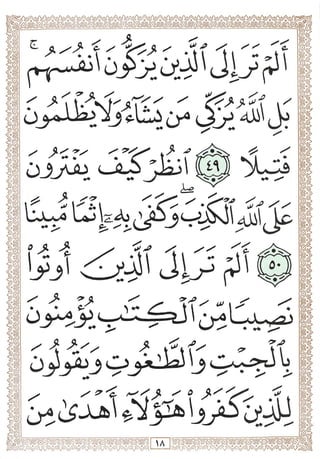 أَلَمۡ تَرَ إِلَى ٱلَّذِينَ يُزَكُّونَ أَنفُسَهُمۚ
بَلِ ٱللَّهُ يُزَكِّي مَن يَشَآءُ وَلَا يُظۡلَمُونَ
فَتِيلًا ٤٩ ٱنظُرۡ كَيۡفَ يَفۡتَرُونَ
عَلَى ٱللَّهِ ٱلۡكَذِبَۖ وَكَفَىٰ بِهِۦٓ إِثۡمٗا مُّبِينًا
٥٠ أَلَمۡ تَرَ إِلَى ٱلَّذِينَ أُوتُواْ
نَصِيبٗا مِّنَ ٱلۡكِتَٰبِ يُؤۡمِنُونَ
بِٱلۡجِبۡتِ وَٱلطَّٰغُوتِ وَيَقُولُونَ
لِلَّذِينَ كَفَرُواْ هَٰٓؤُلَآءِ أَهۡدَىٰ مِنَ
١٨